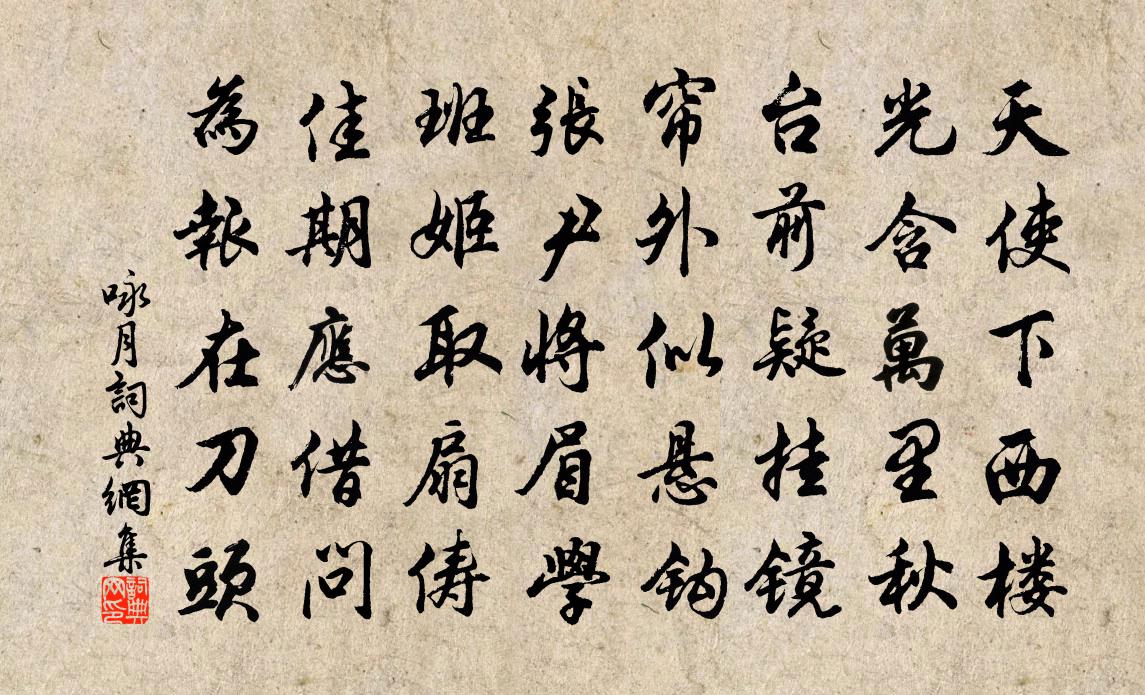 天使下西楼
光含萬里秋
台前疑挂镜
帘外似悬钩
張尹将眉學
班姬取扇俦
佳期應借问
為報在刀頭
咏月詞典網集
詞典网印